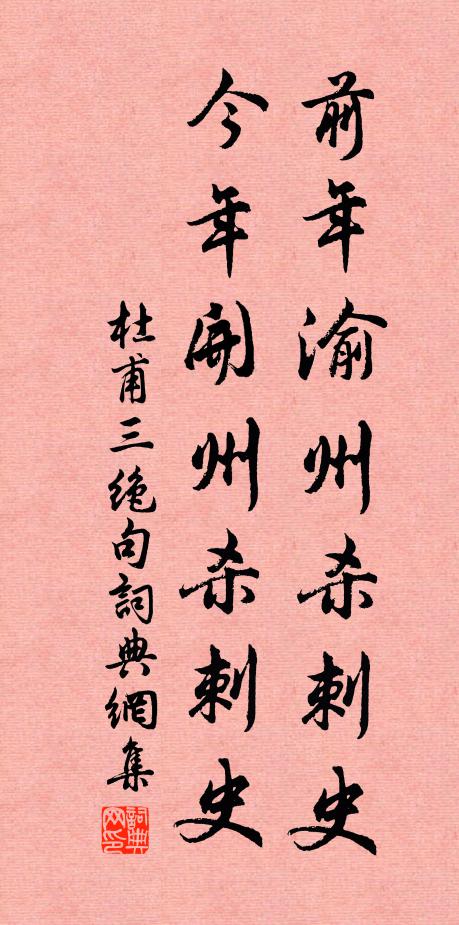 前年渝州杀刺史
今年開州杀刺史
杜甫三绝句詞典網集
詞典网印